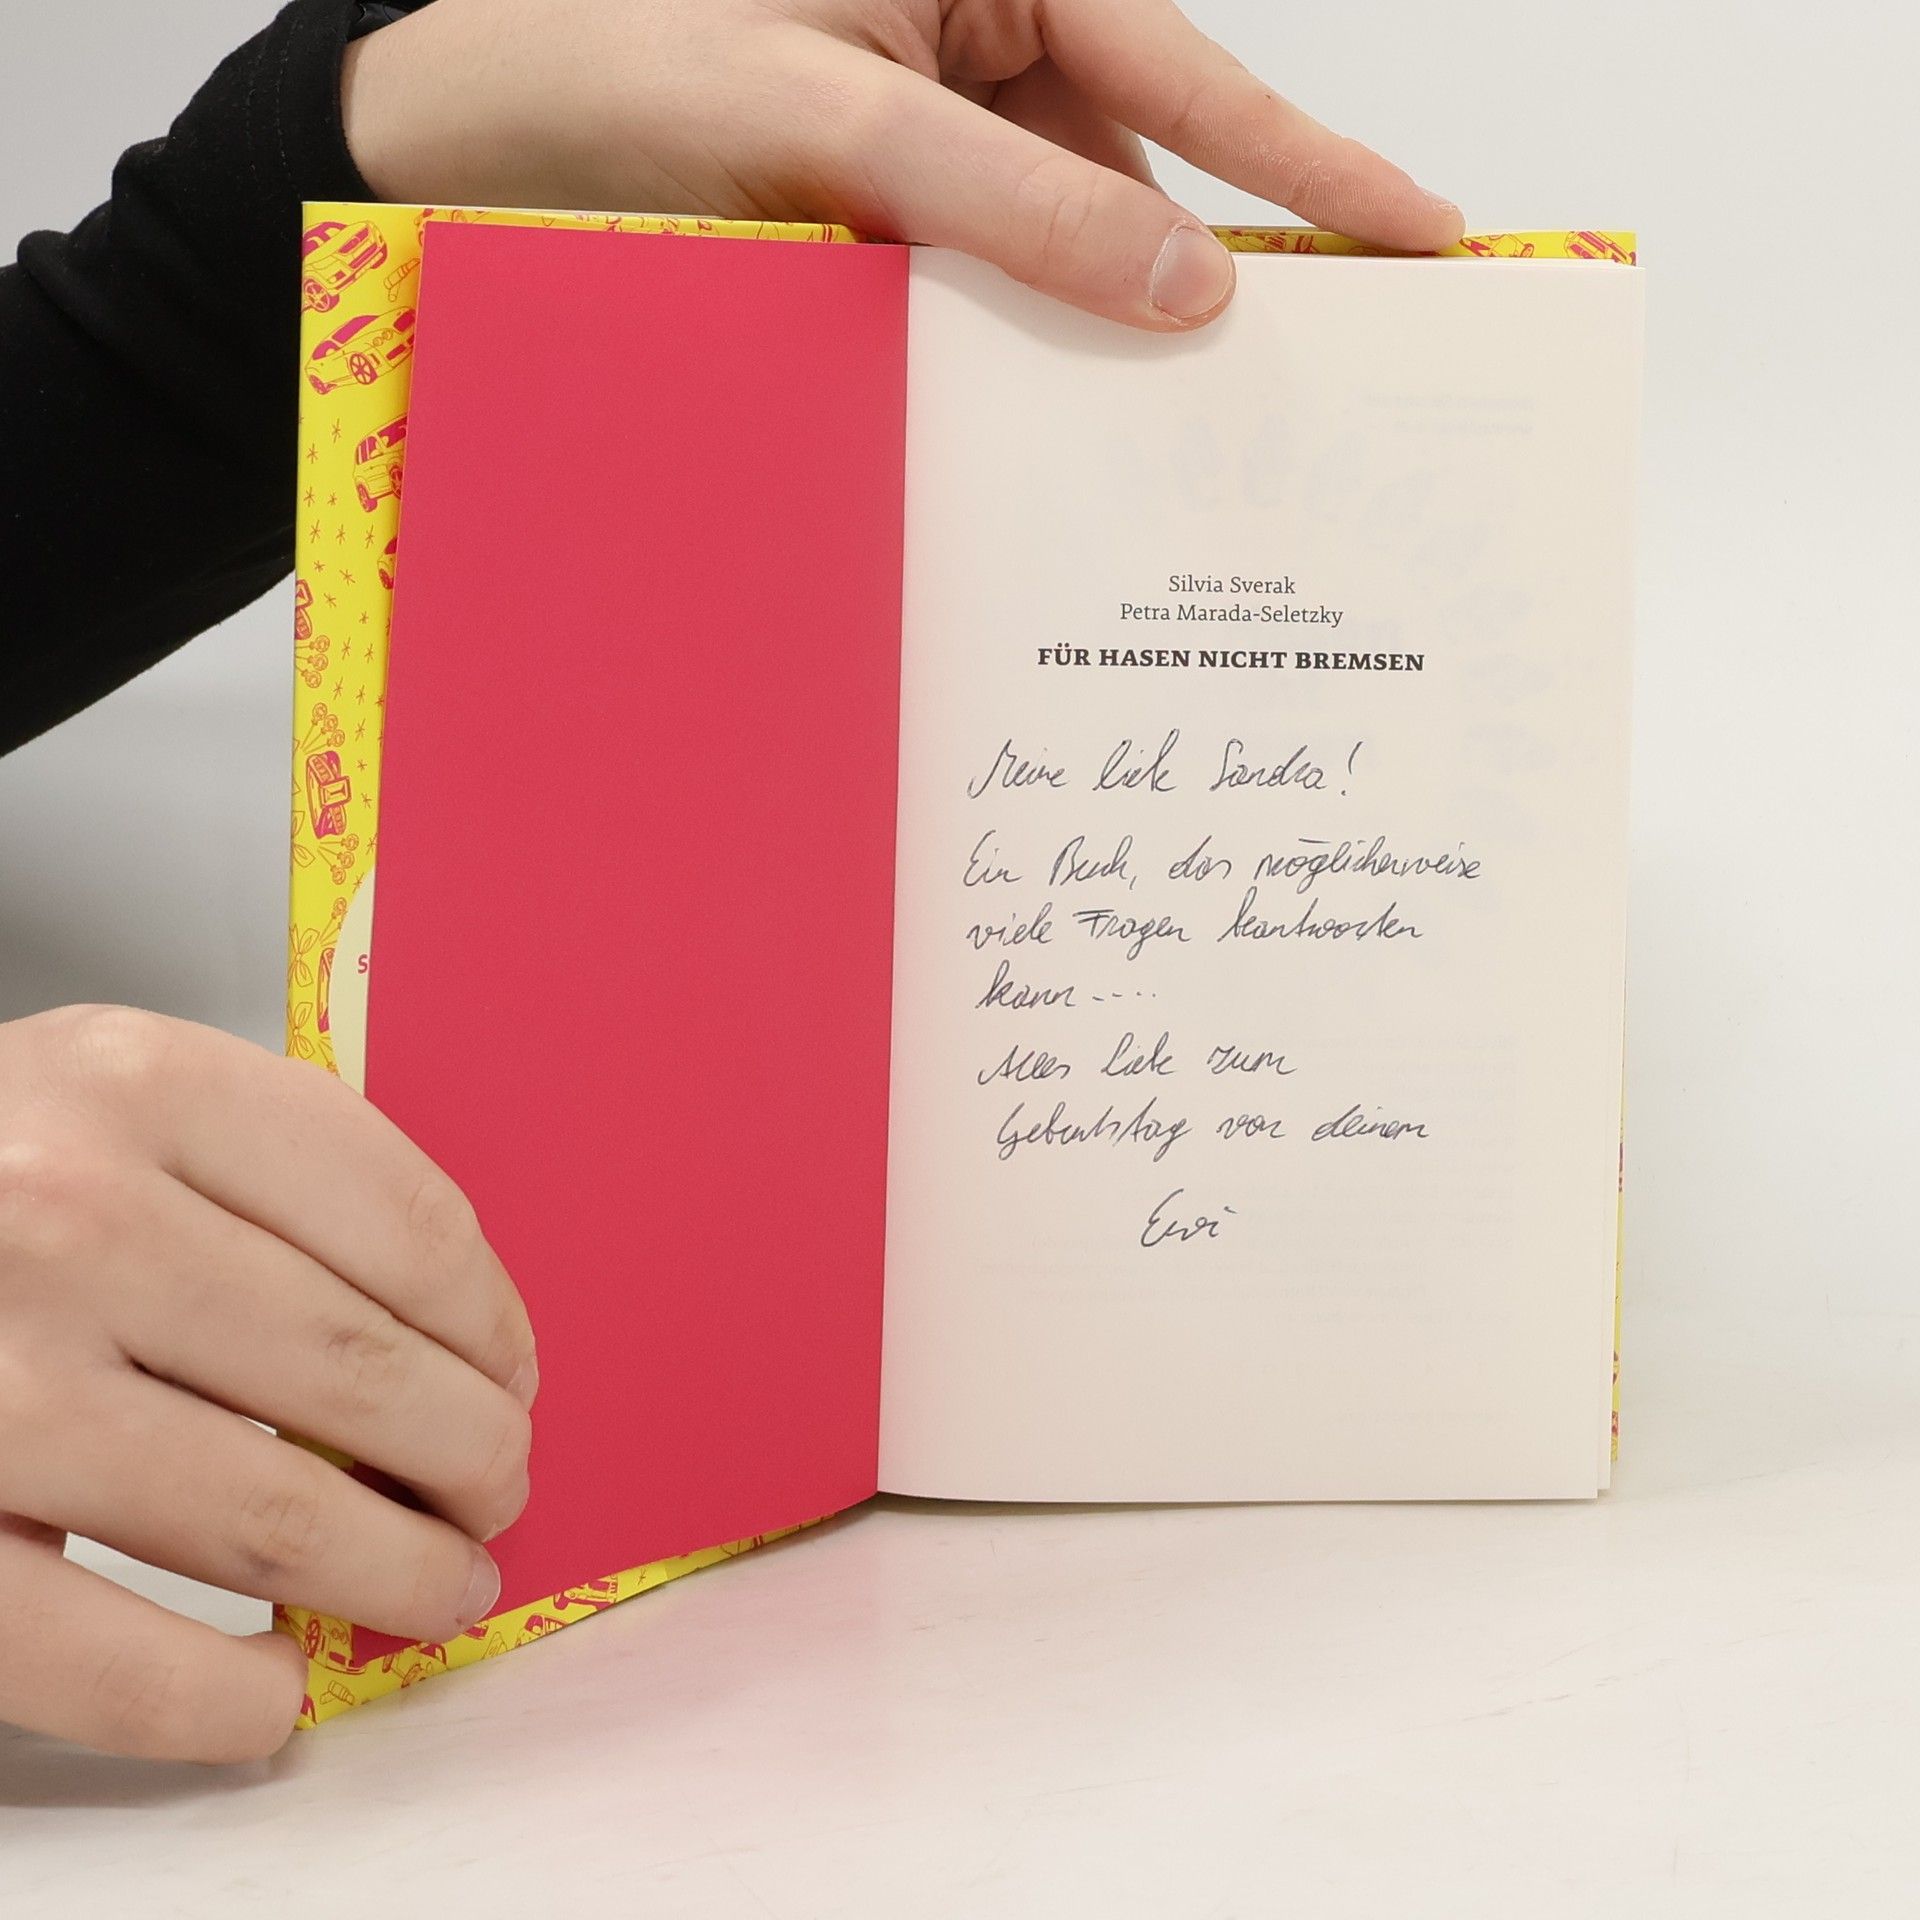 Silvia Sverak
Petra Marada-Seletzky
FÜR HASEN NICHT BREMSEN
Meine liebe Sandra!
Ein Buch, das möglicherweise
viele Fragen beantworten
kann ----
Alles Liebe zum
Geburtstag von deinem
S